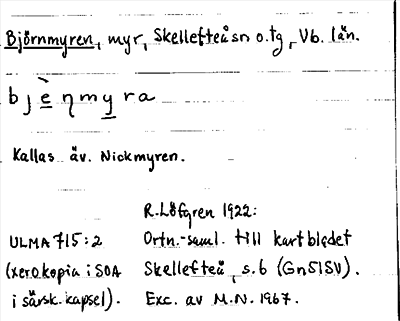 Björnmyren, myr, Skellefteå sn o. tg, Vb. län.
bjèŋmyra
Kallas äv. Nickmyren.
R. Löfgren 1922:
ULMA 715:2 Ortn.-saml. till kartbladet
(xerokopia i SOA Skellefteå, s. 6 (Gn51SV).
i särsk. kapsel). Exc. av M.N. 1967.